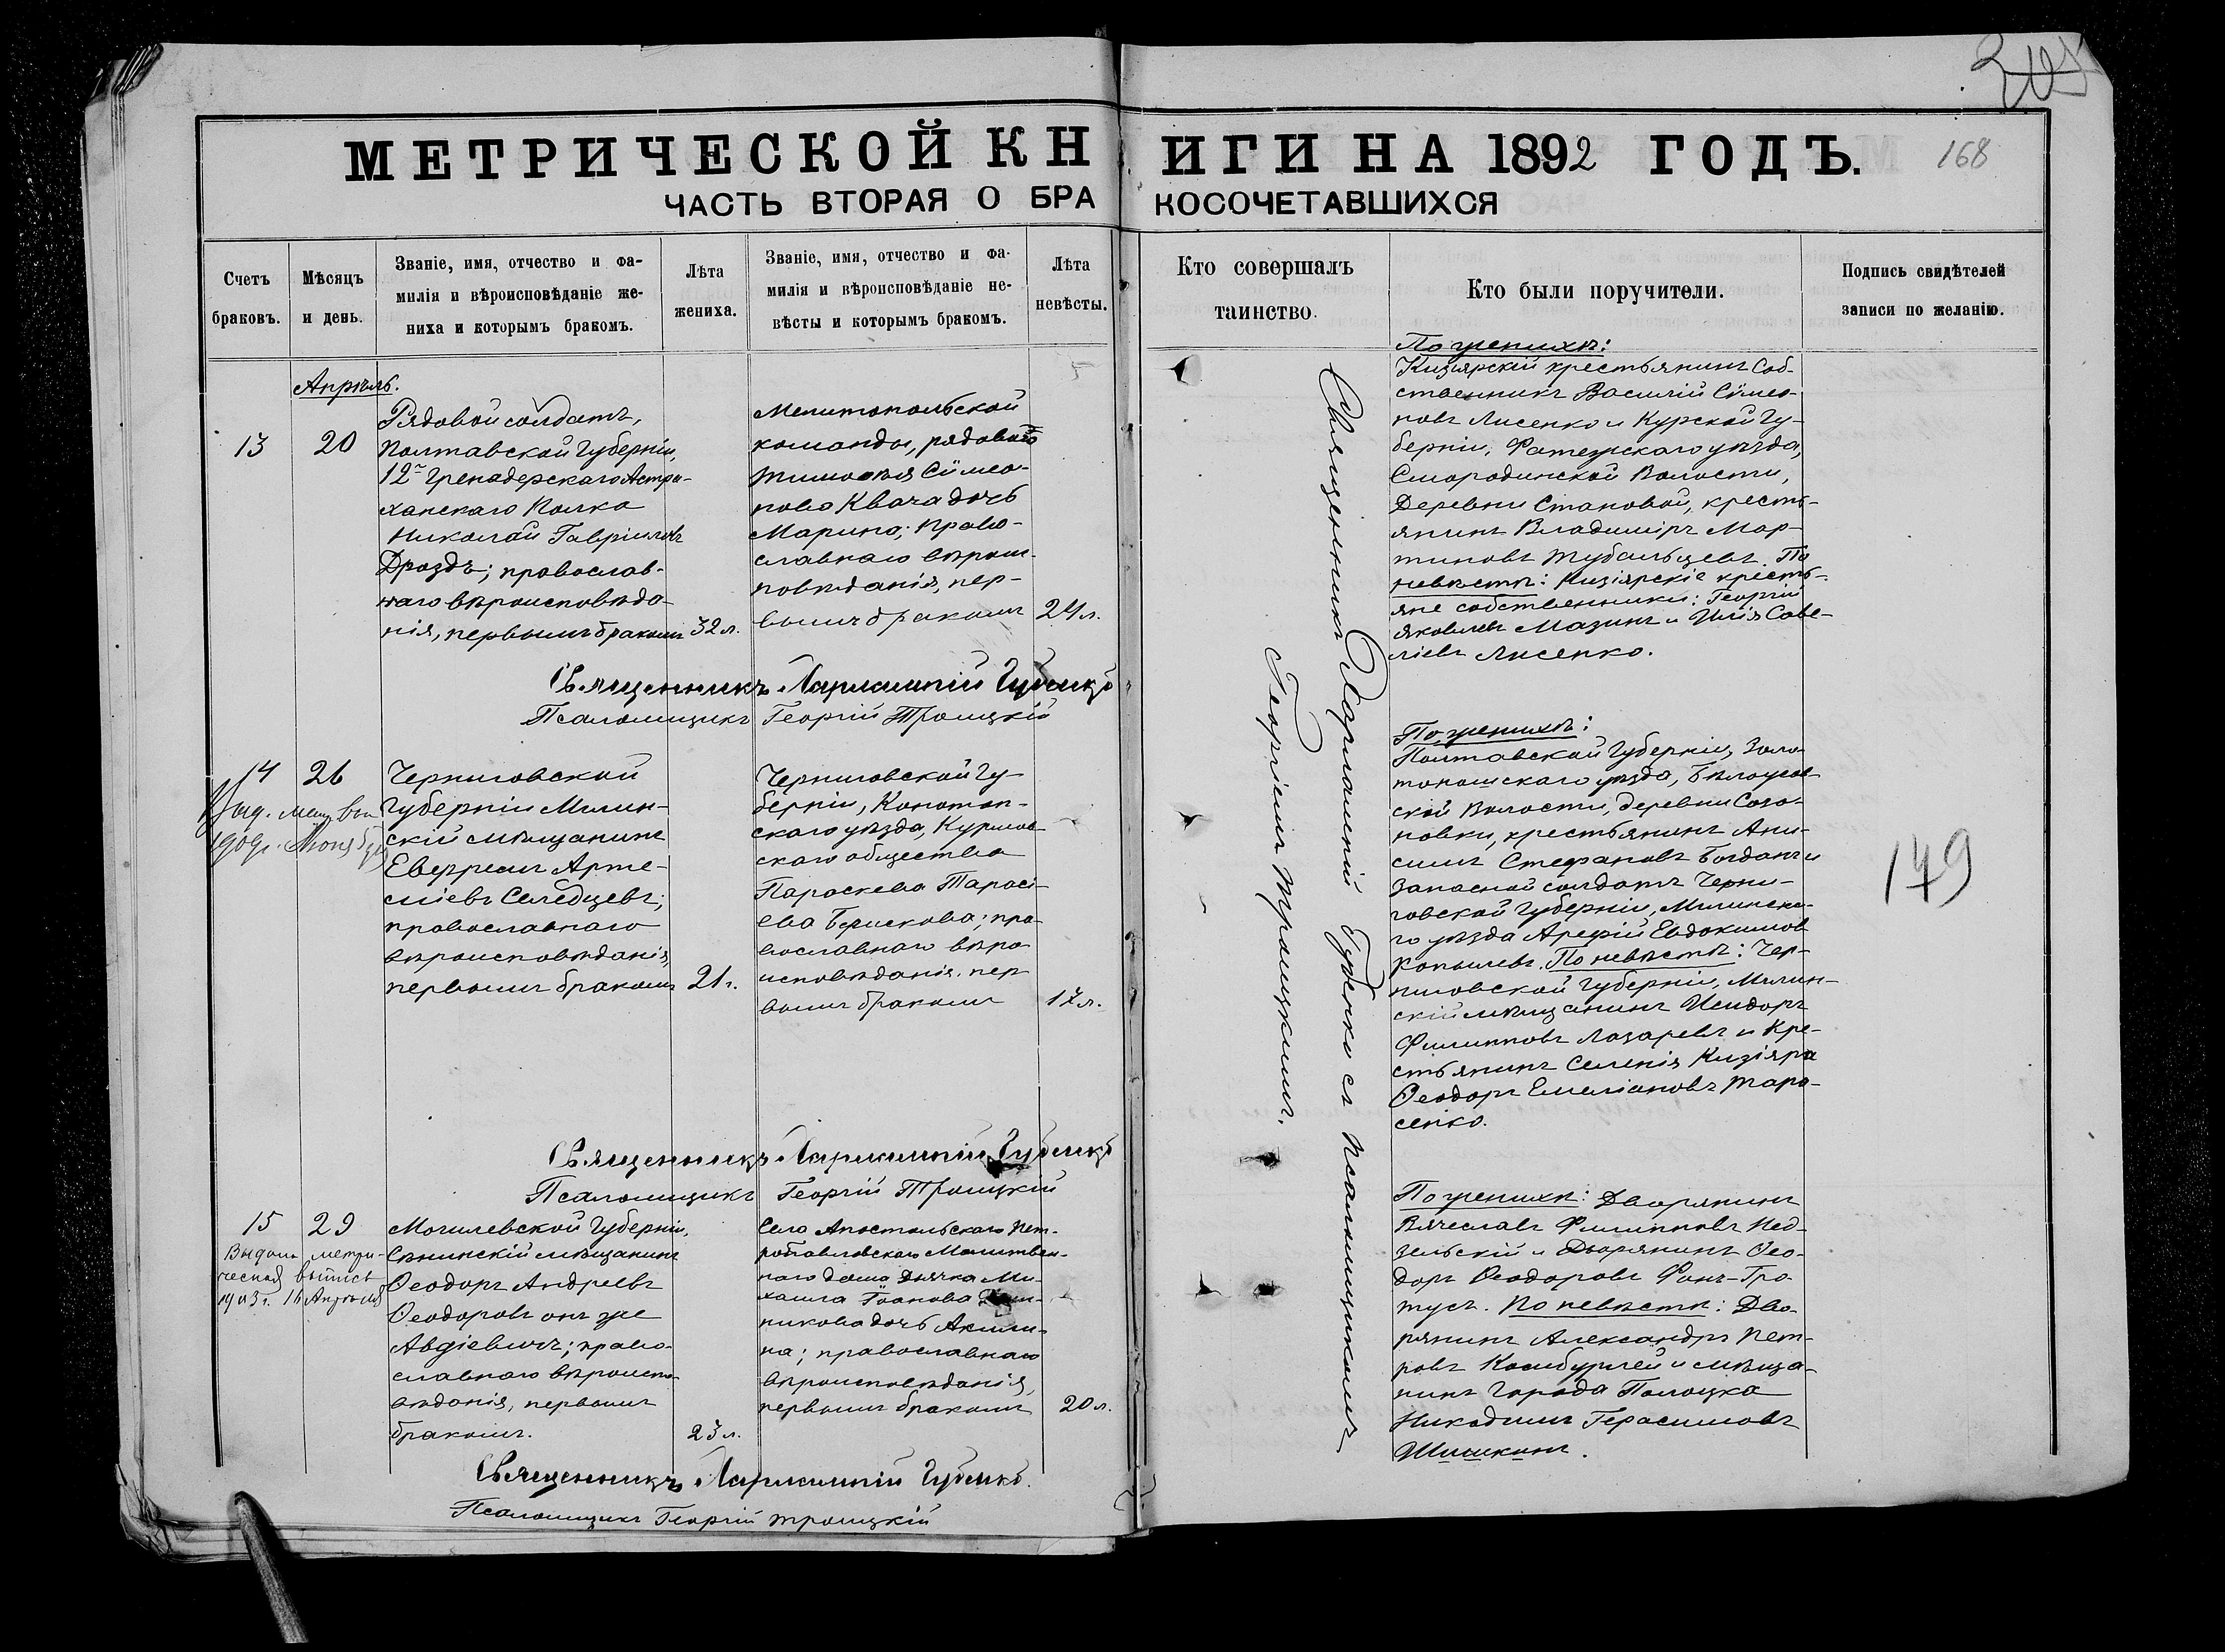 168
МЕТРИЧЕСКОЙ КНИГИ НА 1892 ГОДЪ.
ЧАСТЬ ВТОРАЯ О БРАКОСОЧЕТАВШИХСЯ
Счетъ
браковъ.
Мѣсяцъ
и день.
Званіе, имя, отчество и фа-
милія и вѣроисповѣданіе же-
ниха и которымъ бракомъ.
Лѣта
жениха.
Званіе, имя, отчество и фа-
милія и вѣроисповѣданіе не-
вѣсты и которымъ бракомъ.
Лѣта
невѣсты.
Кто совершалъ
таинство.
Кто были поручители.
Подпись свидѣтелей
записи по желанію.
Апрѣль.
13
20
Рядовой солдатъ,
Полтавской Губерніи,
12го Гренадерскаго Астра-
ханскаго Полка
Николай Гавріиловъ
Дроздъ; православ-
наго вѣроисповѣда-
нія, первымъ бракомъ
32 л.
Мелитопольской
команды, рядового
Тимоѳея Сѵмео-
нова Квача дочь
Марина; право-
славнаго вѣроис-
повѣданія, пер-
вымъ бракомъ
24 л.
По женихѣ:
Кизіярскій крестьянинъ Соб-
ственникъ Василій Сѵмео-
новъ Лисенко и Курской Гу-
берніи, Фатежскаго уѣзда,
Смородинской Волости,
Деревни Становой, кресть-
янинъ Владиміръ Мар-
тиновъ Тубольцевъ. По
невѣстѣ: Кизіярскіе кресть-
яне собственники: Георгій
Яковлевъ Мазинъ и Илія Саве-
ліевъ Лисенко.
Священникъ Харлампій Губенко
Псаломщикъ Георгій Троицкій
Священникъ Харлампій Губенко съ псаломщикомъ
Георгіемъ Троицкимъ.
14
26
1909г.
Черниговской
Губерніи Мглин-
скій мѣщанинъ
Евфремъ Арте-
міевъ Селедцевъ;
православнаго
вѣроисповѣданія,
первымъ бракомъ
21 г.
Черниговской Гу-
берніи, Конотоп-
скаго уѣзда,
скаго общества
Параскева Тарасі-
ева; пра-
вославнаго вѣро-
исповѣданія, пер-
вымъ бракомъ
17 л.
По женихѣ:
Полтавской Губерніи, Золо-
тоношскаго уѣзда, Бѣлоусов-
ской Волости, деревни Созо-
новки, крестьянинъ Ани-
симъ Стефановъ Богданъ и
Запасной солдатъ Черни-
говской Губерніи, Мглинска-
го уѣзда Арефій Евдокимовъ
Копылевъ. По невѣстѣ: Чер-
ниговской Губерніи, Мглин-
скій мѣщанинъ Исидоръ
Филипповъ Лазаревъ и Кре-
стьянинъ Селенія Кизіяра
Ѳеодоръ Емеліановъ Тара-
сенко.
149
Священникъ Харлампій Губенко
Псаломщикъ Георгій Троицкій
15
29
Выдана метри-
ческая выпись
1903 г. 16 Апрѣля
Могилевской Губерніи,
Сѣнинскій мѣщанинъ
Ѳеодоръ Андреевъ
Ѳеодоровъ онъ же
Авдіевичъ; право-
славнаго вѣроиспо-
вѣданія, первымъ
бракомъ.
23 л.
Села Апостольскаго Пет-
ропавловскаго Молитвен-
наго дома Дьячка Ми-
хаила Іоанова
никова дочь Акили-
на; православнаго
вѣроисповѣданія,
первымъ бракомъ
20 л.
По женихѣ: Дворянинъ
Вячеславъ Филипповъ Нед-
зельскій и Дворянинъ Ѳео-
доръ Ѳеодоровъ Фонъ-Гро-
тусъ. По невѣстѣ: Дво-
рянинъ Александръ Пет-
ровъ Косибурлей и мѣща-
нинъ города Полоцка
Никодимъ Герасимовъ
Шишкинъ.
Священникъ Харлампій Губенко.
Псаломщикъ Георгій Троицкій